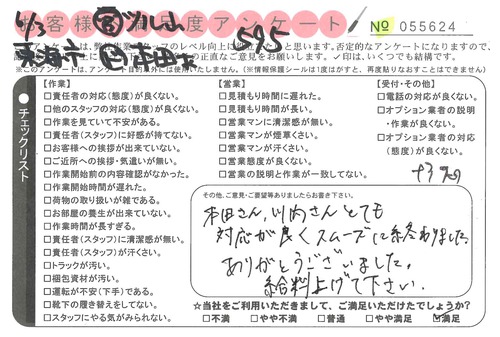 お客様満足度アンケート
№ 055624
6/3
東海市
595
※このアンケートは、アンケート目的以外には使用いたしません。(※情報保護シールは1度はがすと、再度貼りなおすことはできません)
チェックリスト
【作業】
□責任者の対応(態度)が良くない。
□他のスタッフの対応(態度)が良くない。
□作業を見ていて不安がある。
□責任者(スタッフ)に好感が持てない。
□お客様への挨拶が出来ていない。
□ご近所への挨拶・気遣いが無い。
□作業開始前の内容確認がなかった。
□作業開始時間が遅れた。
□荷物の取り扱いが雑である。
□お部屋の養生が出来ていない。
□作業時間が長すぎる。
□責任者(スタッフ)に清潔感が無い。
□責任者(スタッフ)が汗くさい。
□トラックが汚い。
□梱包資材が汚い。
□運転が不安(下手)である。
□靴下の履き替えをしてない。
□スタッフにやる気がみられない。
【営業】
□見積もり時間に遅れた。
□見積もり時間が長い。
□営業マンに清潔感が無い。
□営業マンが煙草くさい。
□営業マンが汗くさい。
□営業態度が良くない。
□営業の説明と作業が一致してない。
【受付・その他】
□電話の対応が良くない。
□オプション業者の説明
・作業が良くない。
□オプション業者の対応
(態度)が良くない。
その他、ご意見・ご要望等ありましたらお書き下さい。
本田さん、川内さんとても
対応が良くスムーズに終わりました。
ありがとうございました。
給料上げて下さい。
★当社をご利用いただきまして、ご満足いただけたでしょうか?
□不満 □やや不満 □普通 □やや満足 ☑満足